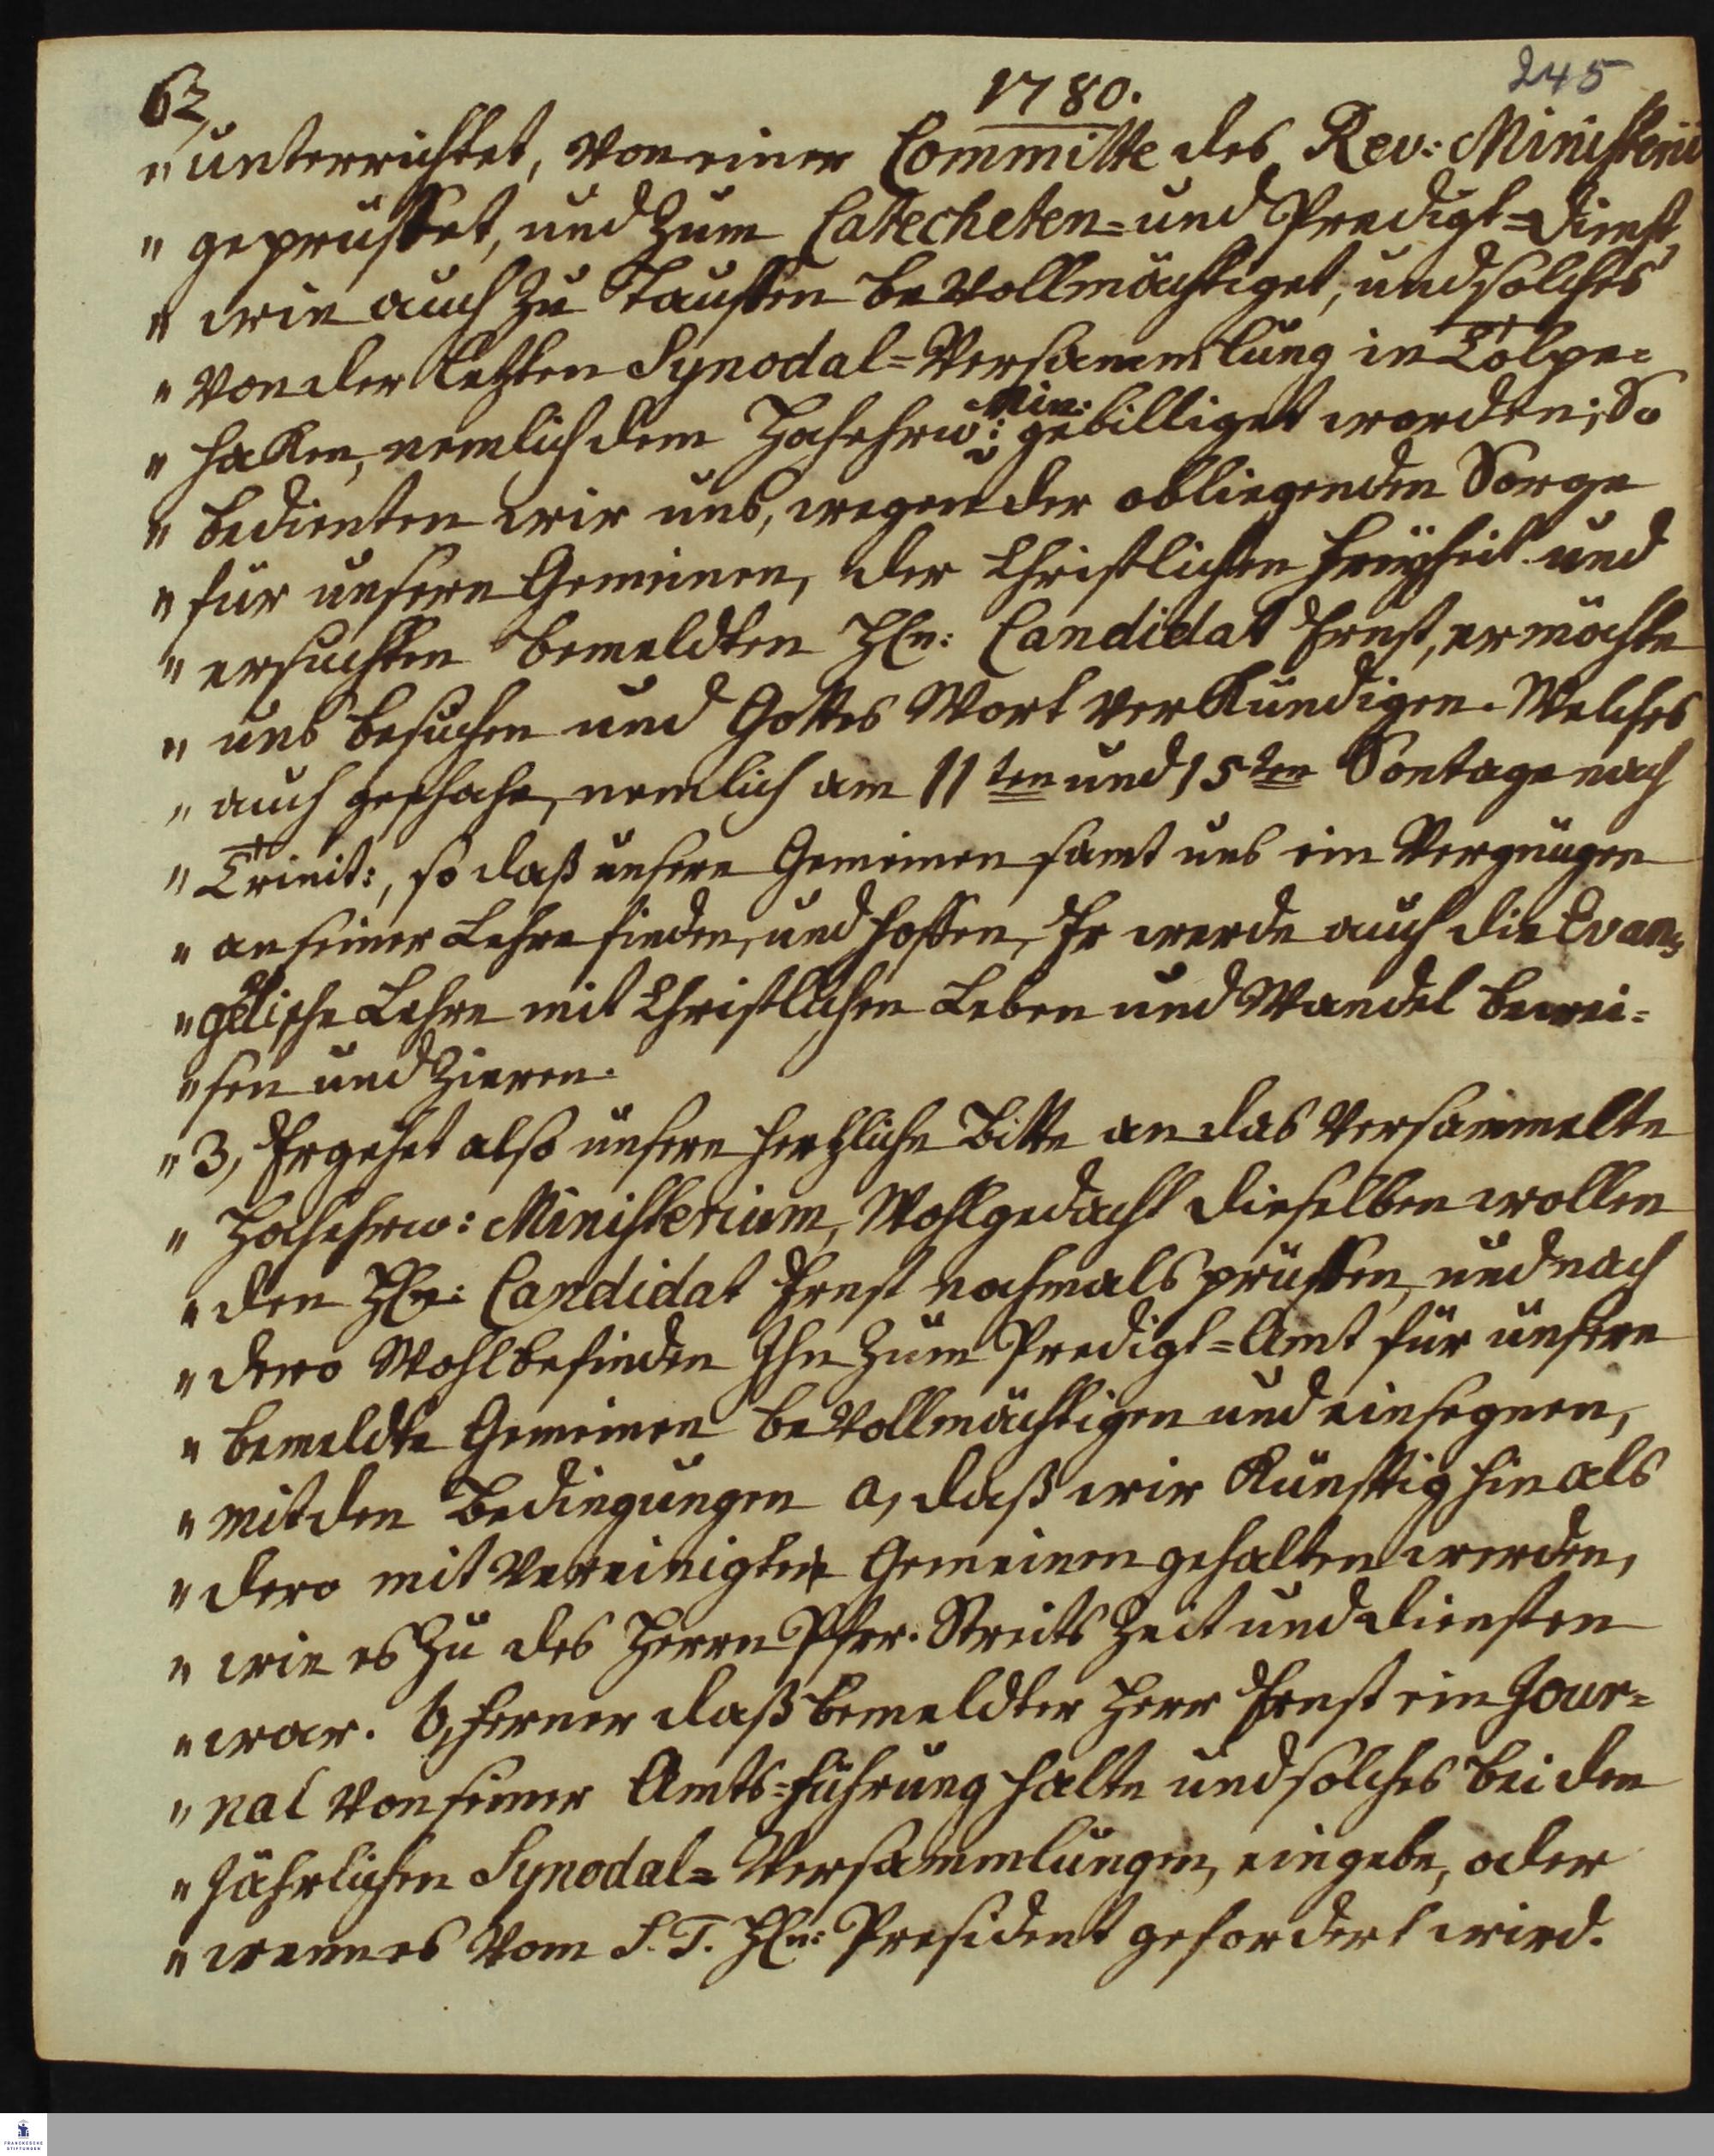 63,
1780.
245
„ unterrichtet, von einer Committe des Rev: Ministerii
„ geprüffet, und zum Catecheten- und Predigt-Dienst,
„ wie auch zu Tauffen bevollmächtiget, und solches
„ von der letzten Synodal-Versammlung in Tolpe-
„ haken, nemlich dem Hochehrw: Min: gebilliget worden; So
„ bedienten wir uns, wegen der obliegenden Sorge
„ für unsere Gemeinen, der Christlichen Freÿheit und
„ ersuchten bemeldten HEn: Candidat Ernst, er möchte
„ uns besuchen und Gottes Wort verkündigen. Welches
„ auch geschahe, nemlich am 11ten und 15ten Sontage nach
„ Trinit:, so daß unsere Gemeinen samt uns ein Vergnügen
„ an seiner Lehre finden, und hoffen, Er werde auch die Evan-
„ gelische Lehre mit Christlichen Leben und Wandel bewei-
„ sen und Zieren.
„ 3, Ergehet also unsere hertzliche Bitte an das versammelte
„ Hochehrw: Ministerium, Wohlgedacht dieselben wollen
„ den HEn: Candidat Ernst nochmals prüffen, und nach
„ dero Wohlbefinden Ihn zum Predigt-Amt für unsere
„ bemeldte Gemeinen bevollmächtigen und einsegnen,
„ mit den Bedingungen a, daß wir künfftig hin als
„ dero mit vereinigten Gemeinen gehalten werden,
„ wie es zu des Herrn Pfar. Streits Zeit und diensten
„ war. b, ferner daß bemeldter Herr Ernst ein Jour-
„ nal von seiner Amts-führung halte und solches bei den
„ Jährlichen Synodal-Versammlungen, eingebe, oder
„ wenn es vom S. T. HEn: President gefordert wird.
FRANCKESCHE
STIFTUNGEN